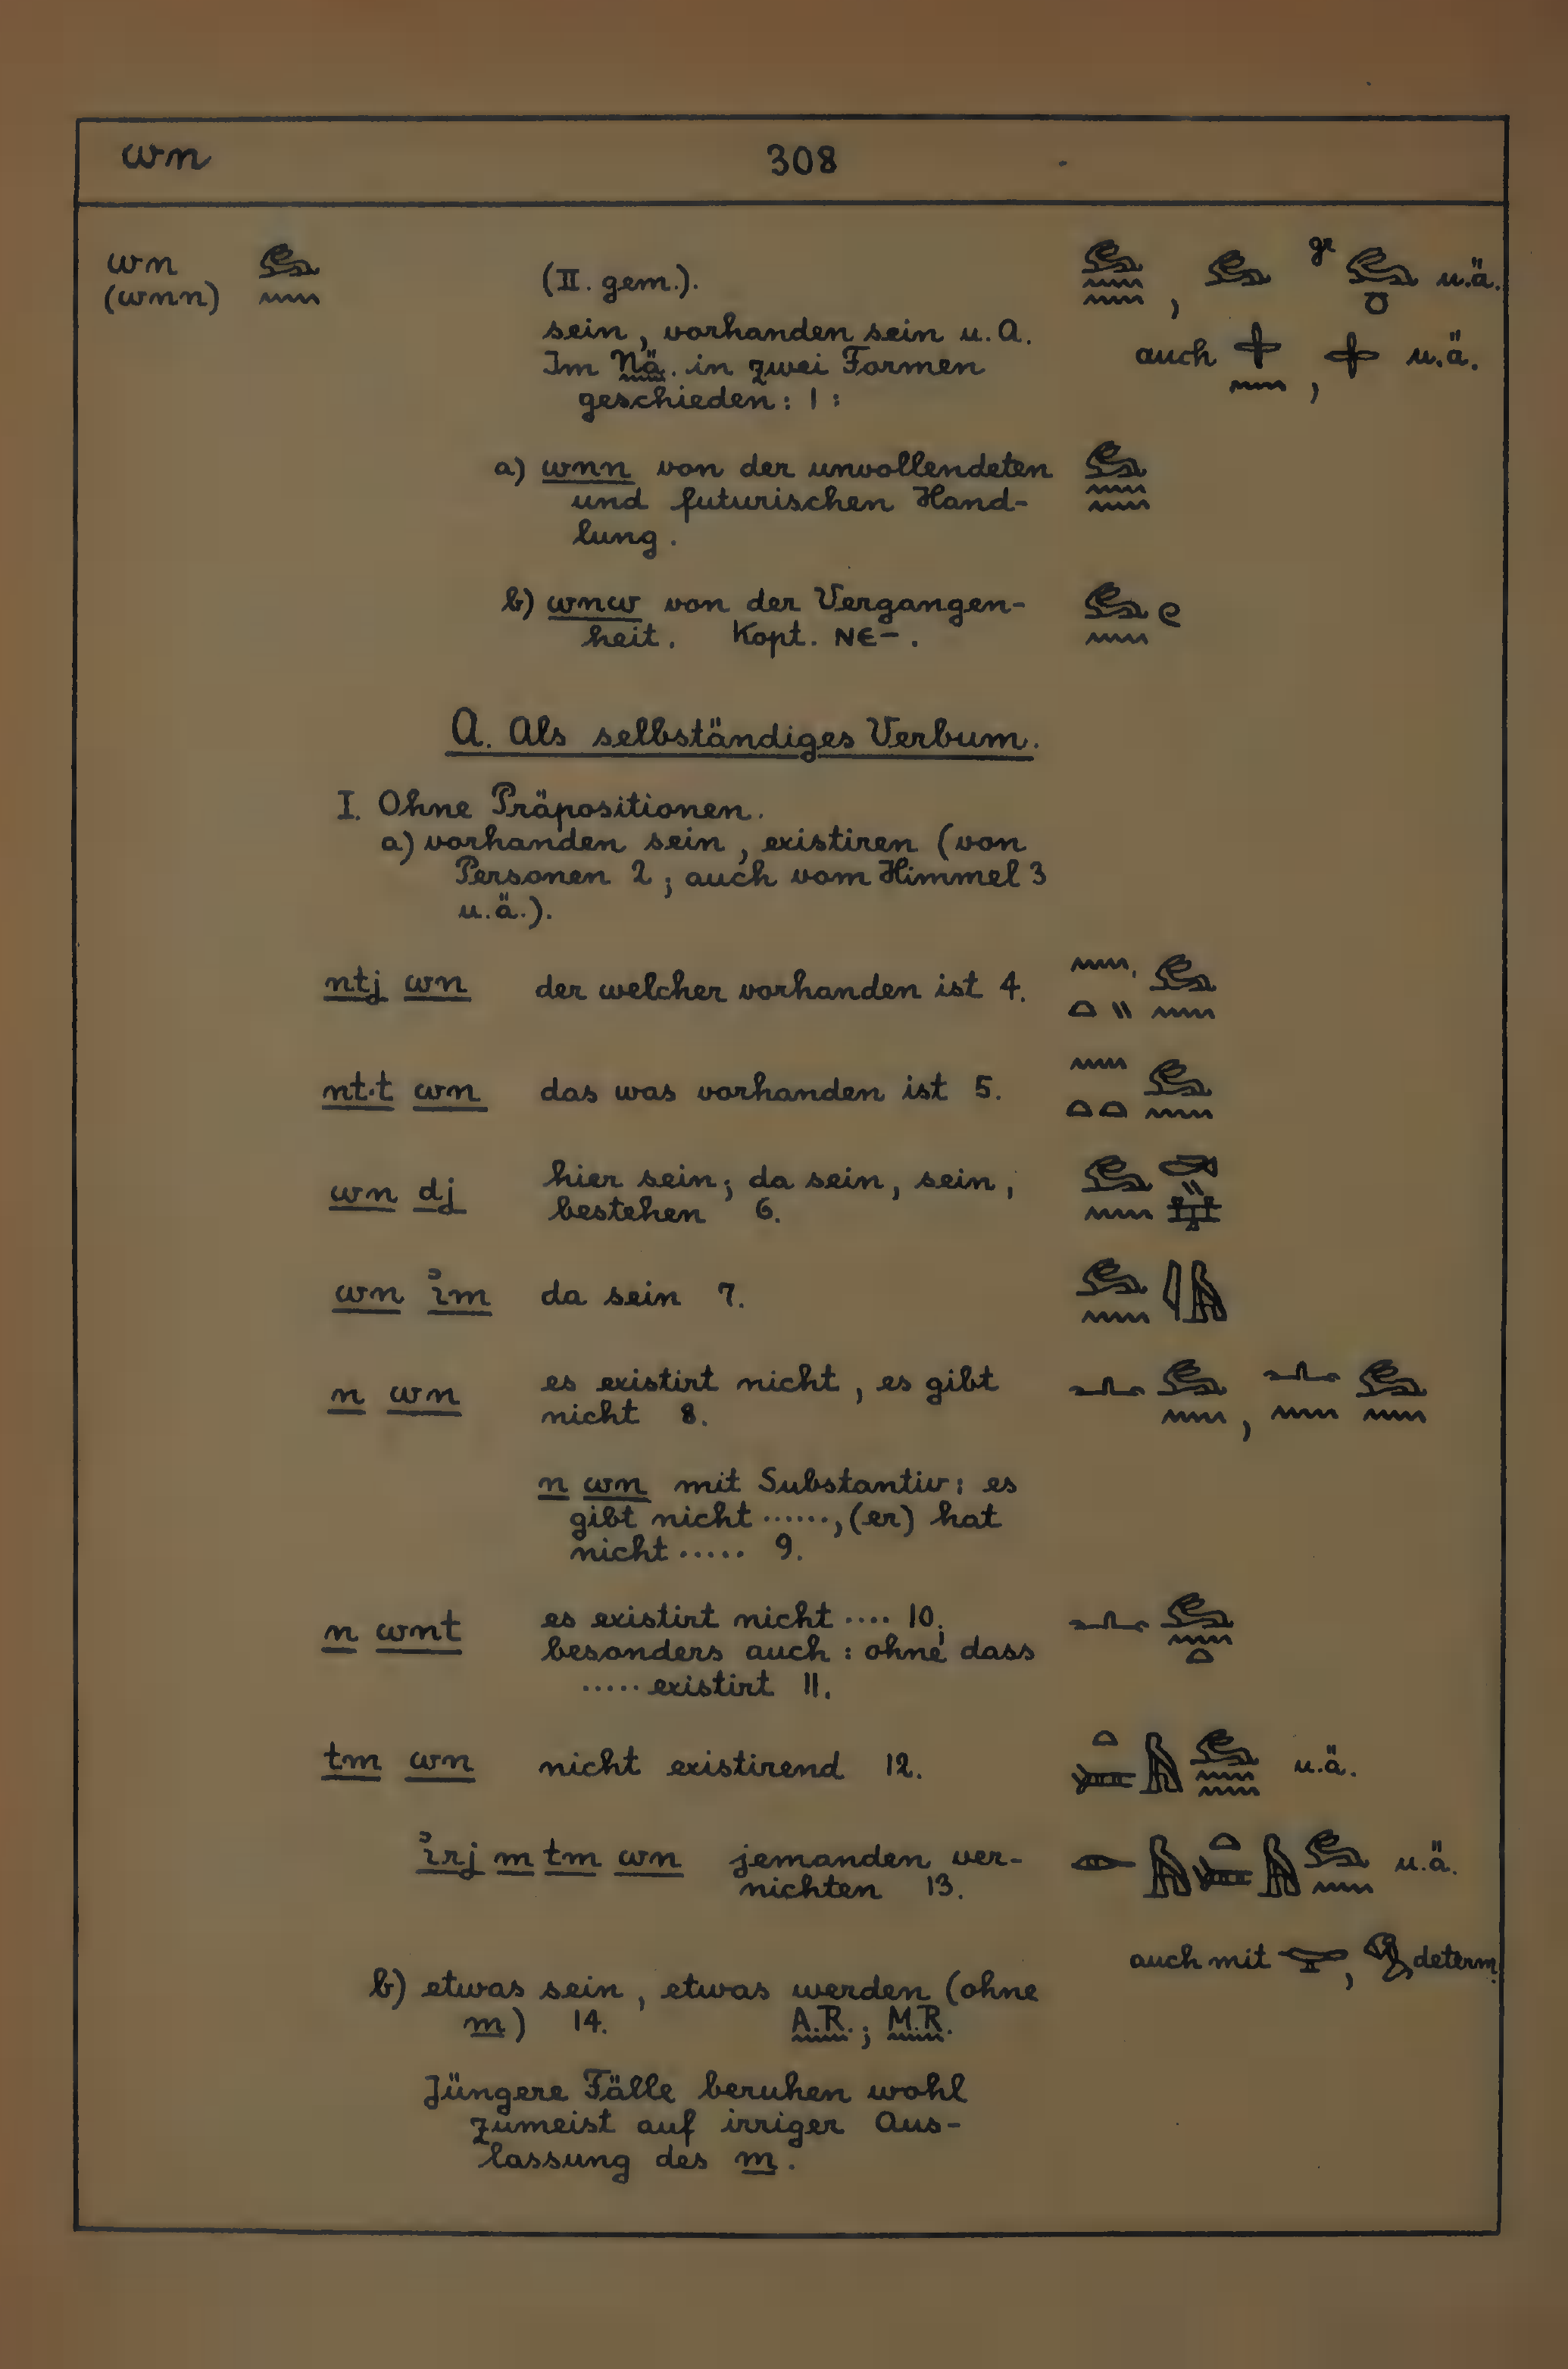 wn 308
wn 𓃹𓈖 (II. gem.). 𓃹𓈖𓈖, 𓃹 gr 𓃹𓏌 u.ä.
(wnn)
sein, vorhanden sein u. A.
Im Nä. in zwei Formen auch 𓇬𓈖, 𓇬 u.ä.
geschieden: 1:
a) wnn von der unvollendeten 𓃹𓈖𓈖
und futurischen Hand-
lung.
b) wnw von der Vergangen- 𓃹𓈖𓏲
heit. Kopt. ⲚⲈ-.
A. Als selbständiges Verbum.
I. Ohne Präpositionen.
a) vorhanden sein, existiren (von
Personen 2; auch vom Himmel 3
u.ä.).
ntj wn der welcher vorhanden ist 4. 𓈖𓏏𓏭𓃹𓈖
nt·t wn das was vorhanden ist 5. 𓈖𓏏𓏏𓃹𓈖
wn dj hier sein; da sein, sein,
bestehen 6.
wn ı͗m da sein 7. 𓃹𓈖𓇋𓅓
n wn es existirt nicht, es gibt 𓂜𓃹𓈖, 𓂜𓈖𓃹𓈖
nicht 8.
n wn mit Substantiv: es
gibt nicht ......, (er) hat
nicht ..... 9.
n wnt es existirt nicht .... 10; 𓂜𓃹𓈖𓏏
besonders auch: ohne dass
..... existirt 11.
tm wn nicht existirend 12. 𓏏𓍃𓅓𓃹𓈖𓈖 u.ä.
ı͗rj m tm wn jemanden ver- 𓁹𓅓𓏏𓍃𓅓𓃹𓈖 u.ä.
nichten 13.
auch mit determ.
b) etwas sein, etwas werden (ohne
m) 14. A.R.; M.R.
Jüngere Fälle beruhen wohl
zumeist auf irriger Aus-
lassung des m.